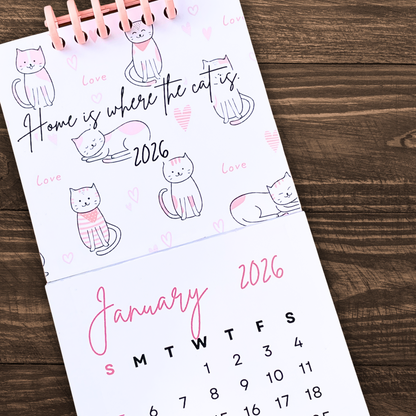 January 2026
Love
Love
Home is where the cat is.
2026
Love
Love
January 2026
S M T W T F S
1 2 3 4
6 7 8 9 10 11
16 17 18